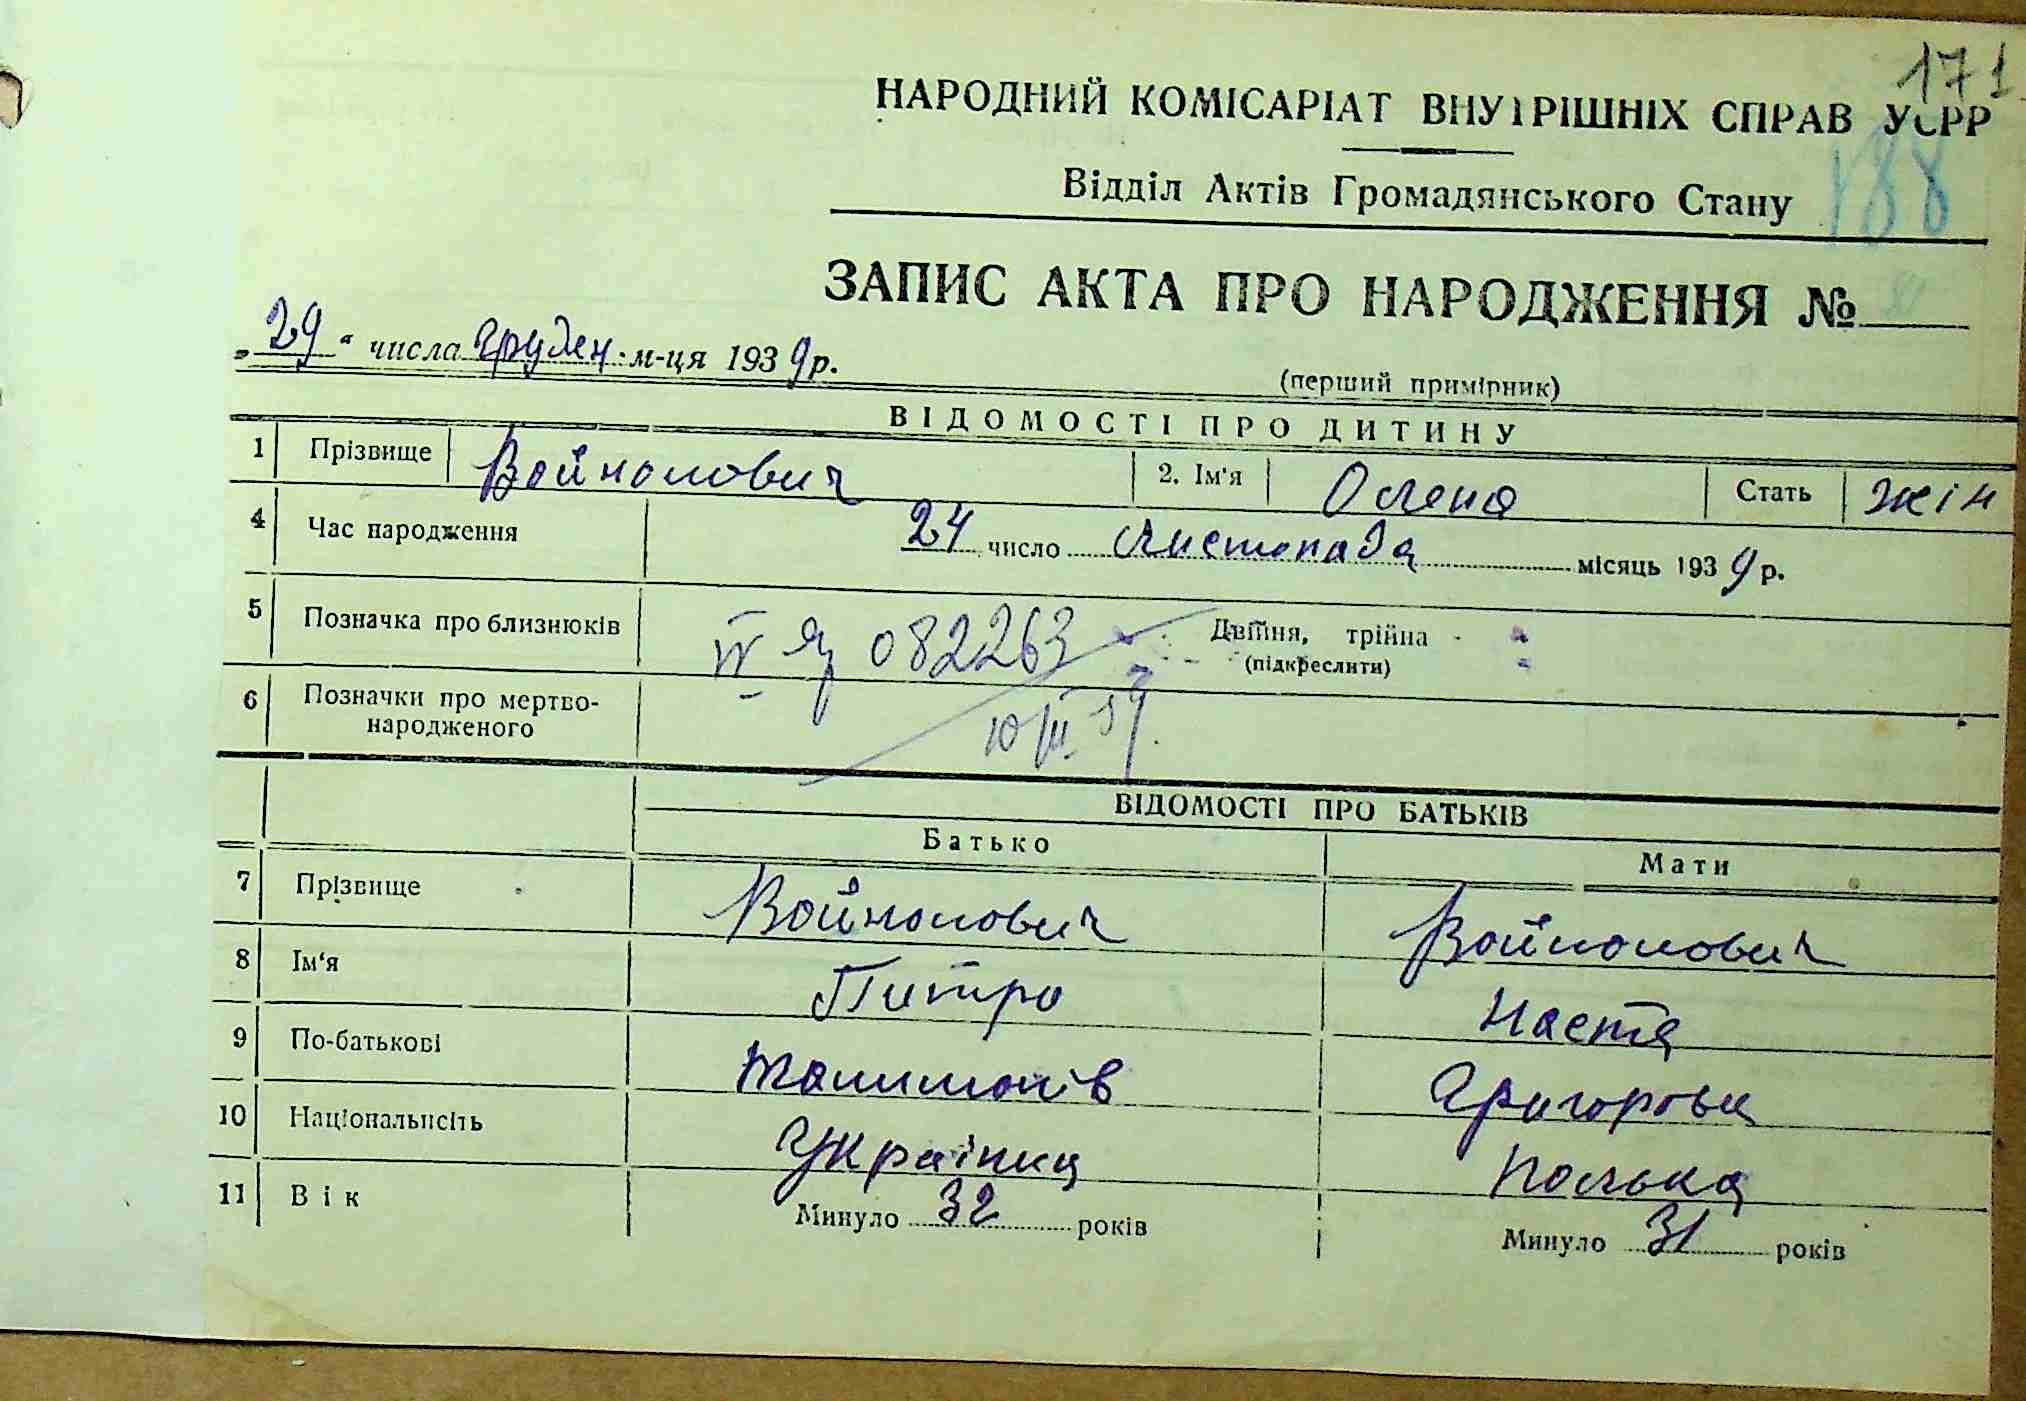 171
НАРОДНИЙ КОМІСАРІАТ ВНУТРІШНІХ СПРАВ УСРР
188
Відділ Актів Громадянського Стану
ЗАПИС АКТА ПРО НАРОДЖЕННЯ №
„29“ числа грудн. м-ця 1939р.
(перший примірник)
ВІДОМОСТІ ПРО ДИТИНУ
1 Прізвище Войнолович 2. Ім'я Олена Стать жін
4 Час народження 24 число Листопада місяць 1939р.
5 Позначка про близнюків IV 082263 Двійня, трійна
(підкреслити)
6 Позначки про мертво-
народженого 10/III 59.
ВІДОМОСТІ ПРО БАТЬКІВ
Батько Мати
7 Прізвище Войнолович Войнолович
8 Ім'я Питро Настя
9 По-батькові Григоровна
10 Національність Українец Полька
11 Вік Минуло 32 років Минуло 31 років